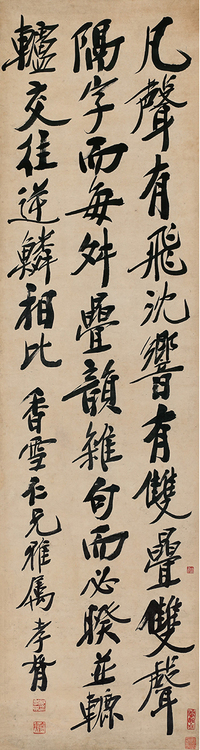 凡聲有飛沈響有雙疊雙聲
隔字而每舛疊韻雜句而必睽並轆
轤交往逆鱗相比
香雪仁兄雅屬孝胥